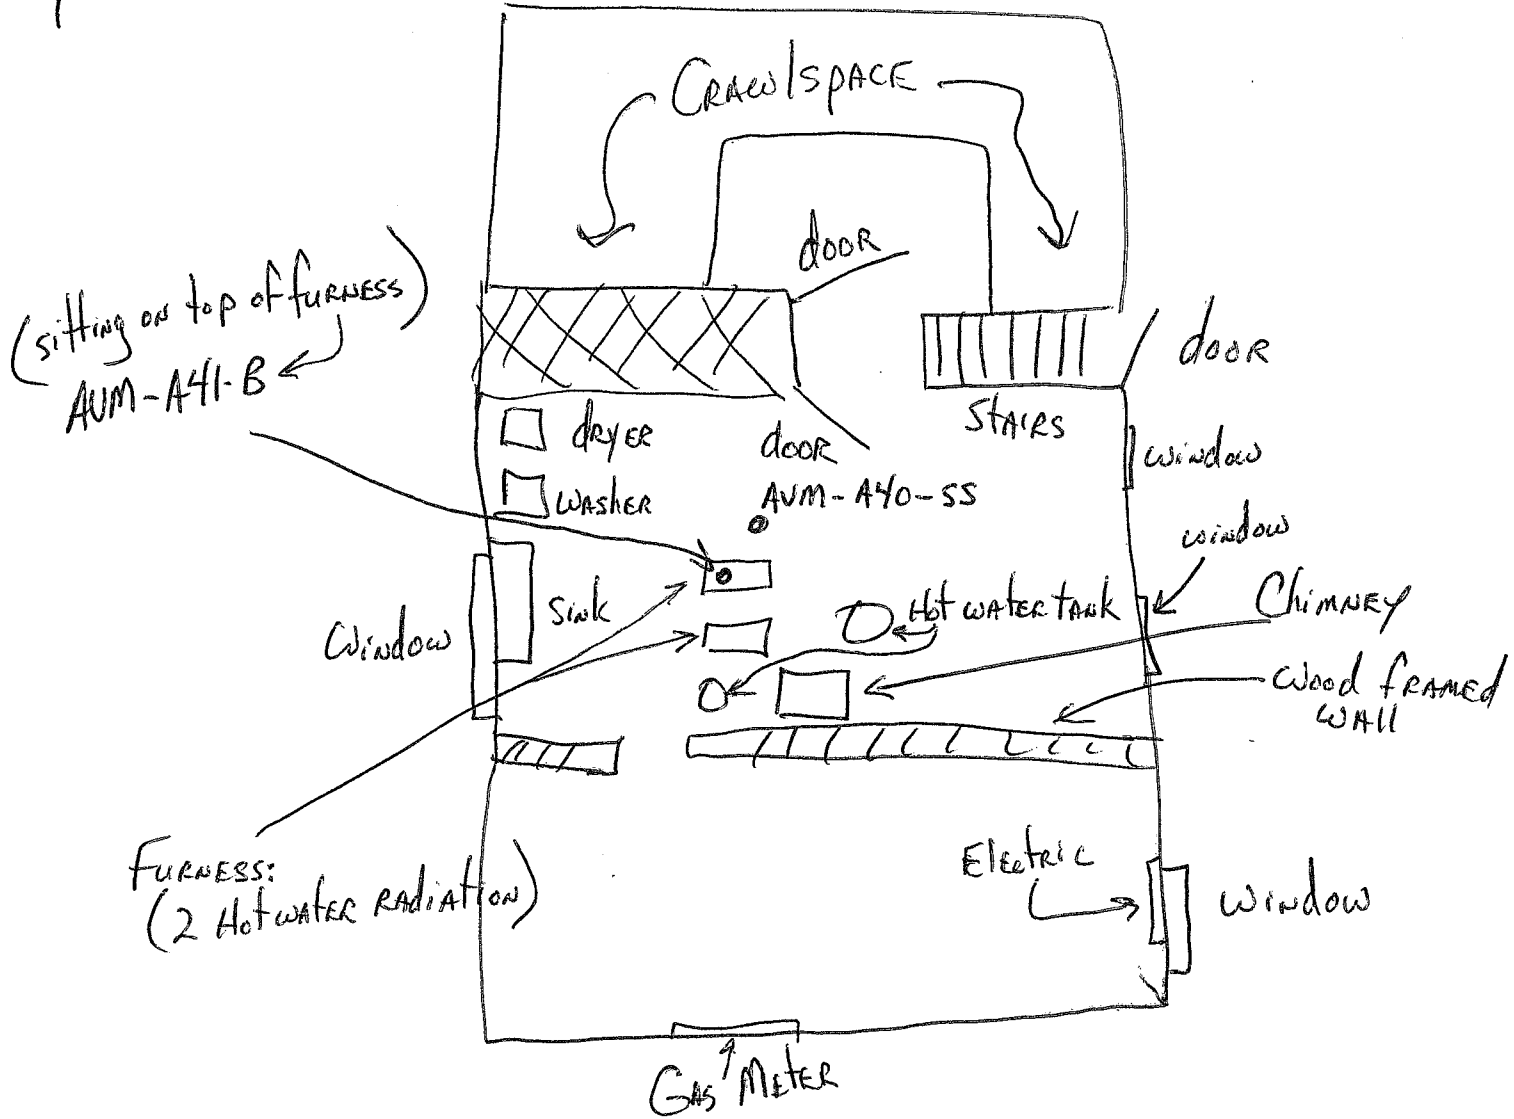 CRAWlSPACE
door
(sitting on top of furness)
AVM-A41-B
door
STAIRS
dRYER
door
window
WASHER
AVM-A40-SS
window
Sink
Hot WATER TANK
Chimney
Window
Wood FRAMED
WAll
FURNESS:
(2 Hot WATER RAdiATion)
Electric
Window
GAS METER